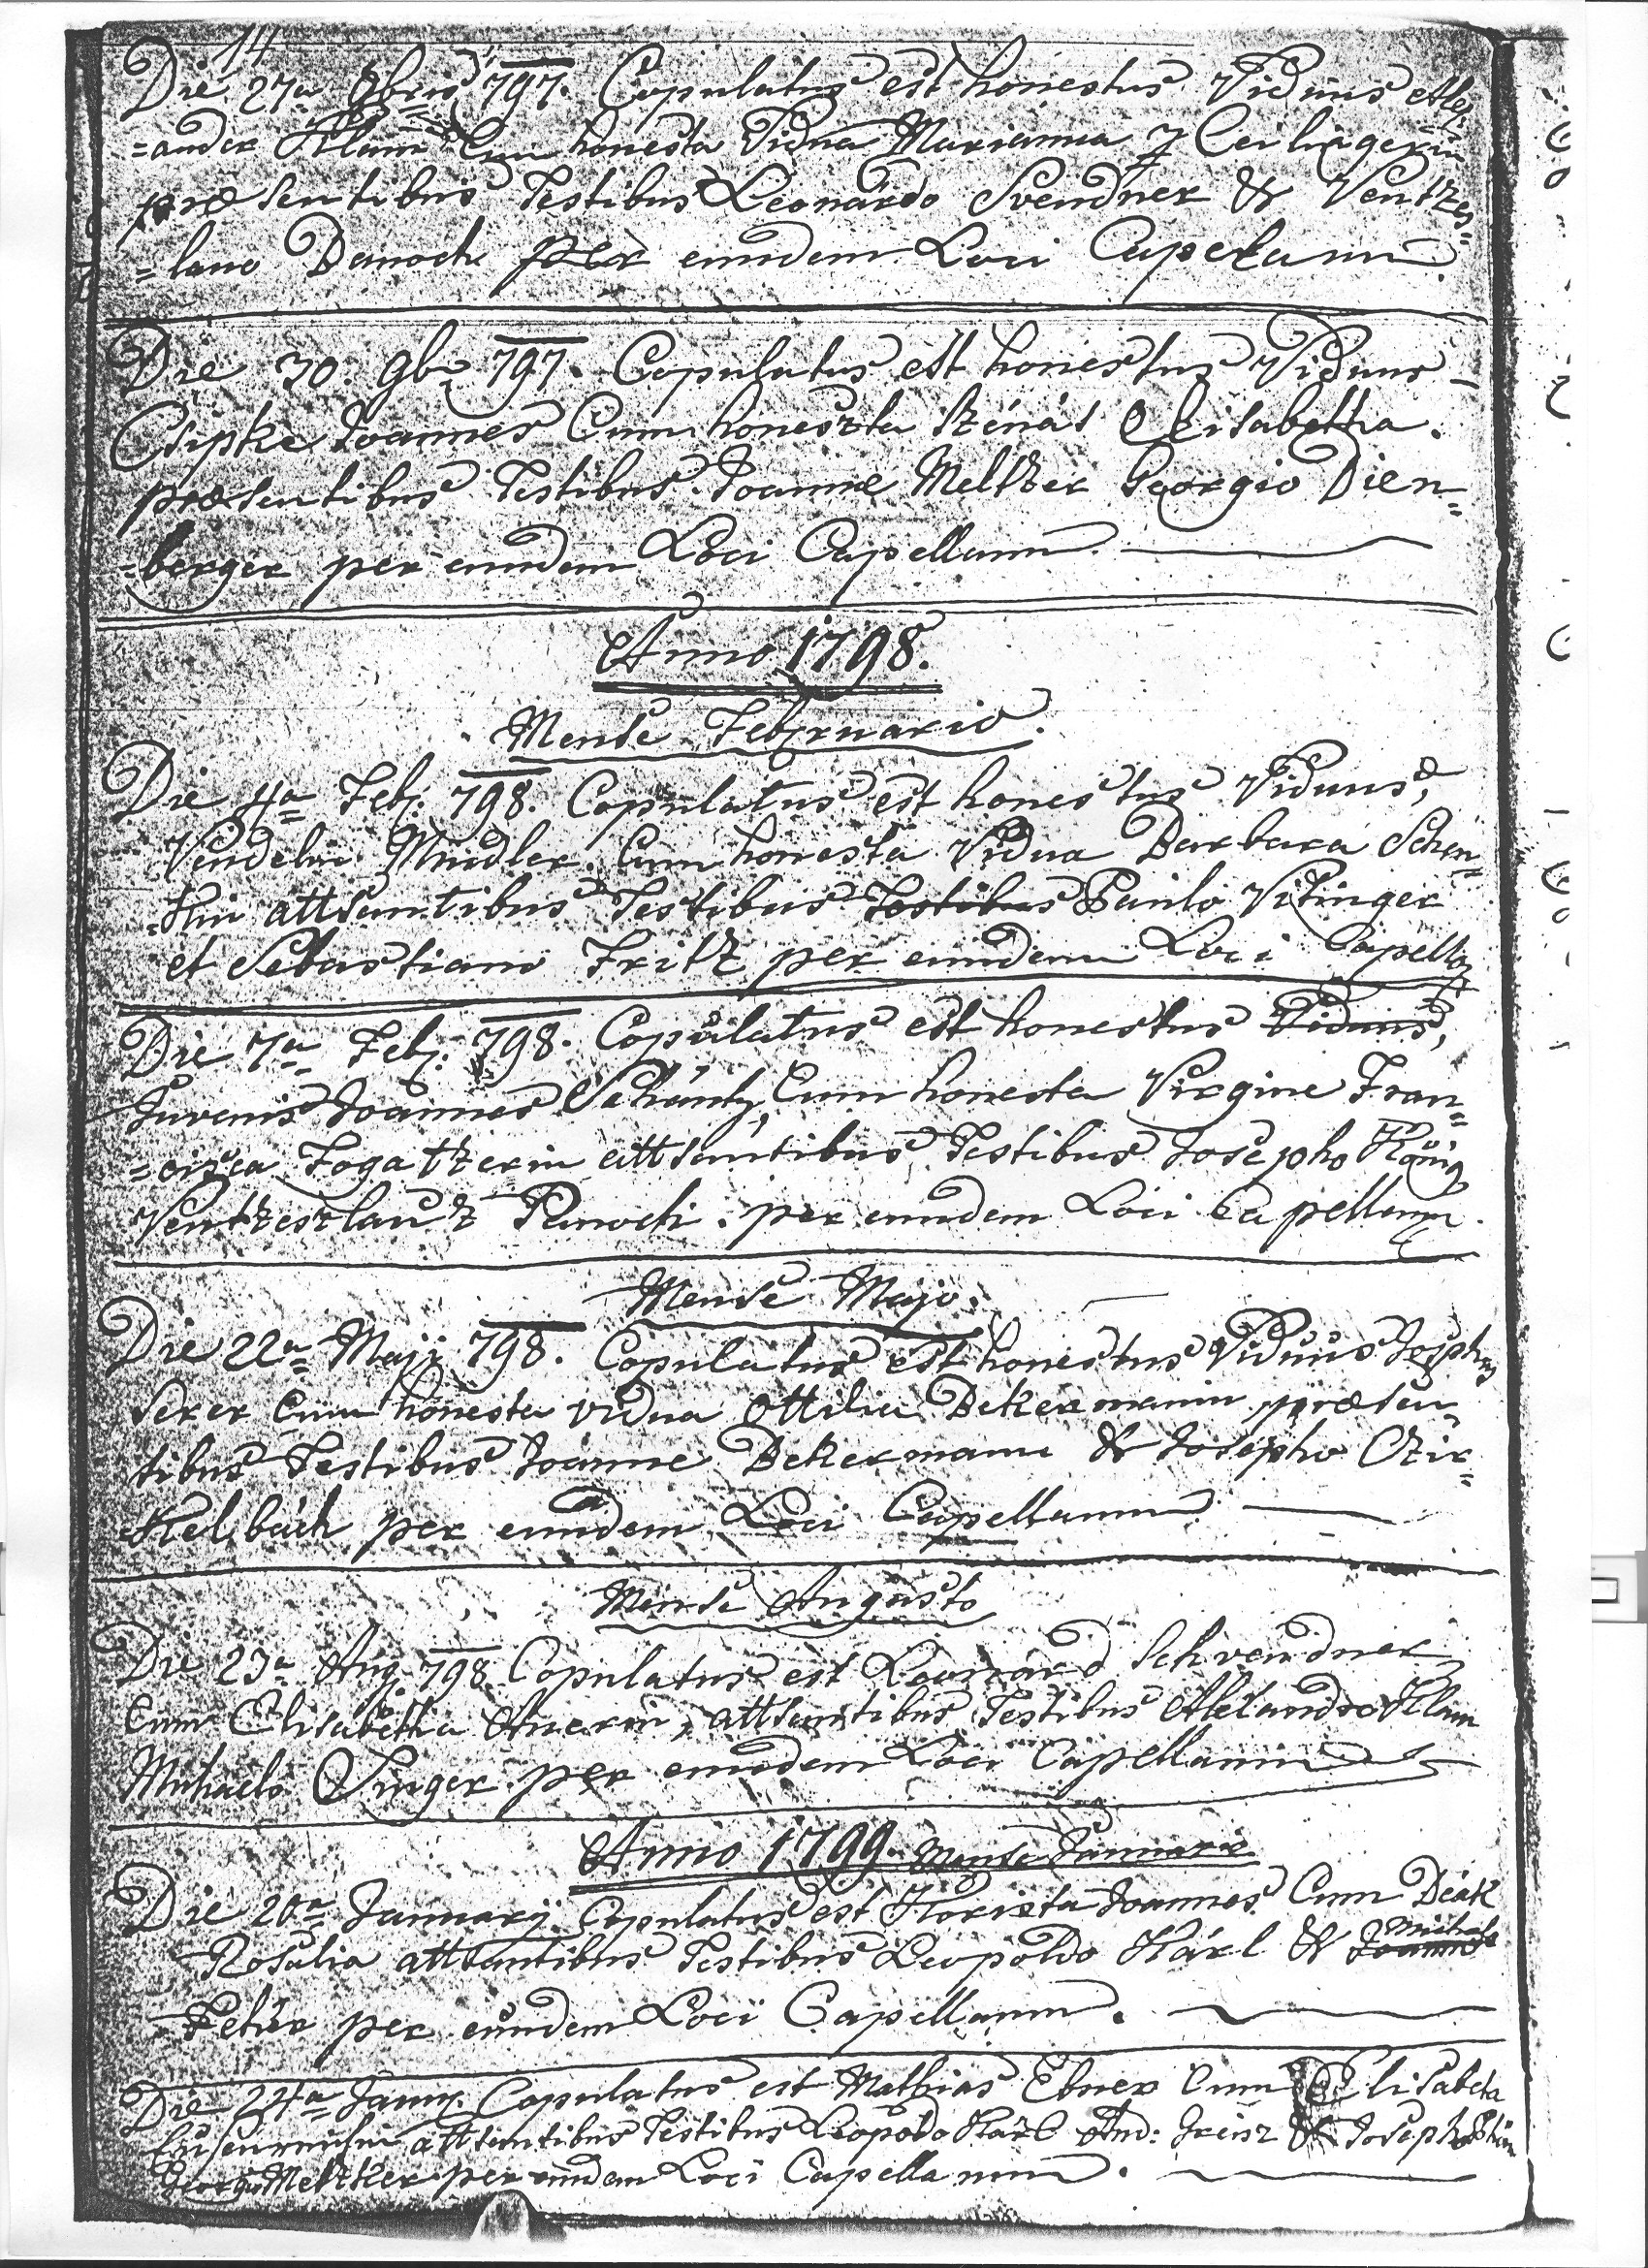 14
Die 27a 9bris 797. Copulatus est honestus Viduus Alex
=ander Klam Cum honesta Vidua Marianna
præsentibus Testibus Leonardo Svendner & Ventzes=
=lano Danoch per eiusdem Loci Capelanum.
Die 30. 9br 797. Copulatus est honestus Viduus
Csipke Joannes Cum honeszta Szénás Elisabetha.
præsentibus Testibus Joanne Meltzer Georgio Dien=
=berger per eiusdem Loci Capellanum.
Anno 1798.
Mense Februario.
Die 4a Feb. 798. Copulatus est honestus Viduus,
Vendelin Mindler, Cum honesta Vidua Barbara Schen=
=kin attsantibus Testibus Testibus Paulo Vitinger
et Sebastiano Fritz per eiusdem Loci Capella
Die 7a Feb. 798. Copulatus est honestus Viduus,
Juvenis Joannes Schántz, Cum honesta Virgine Fran=
=cizca Fogatzerin attsantibus Testibus Josepho König
Ventzeszlauz Panoch. per eiusdem Loci Capellanum.
Mense Majo.
Die 22a Maji 798. Copulatus est honestus Viduus Josephus
Serer Cum honesta vidua Ottilia Bekermanin præsen
tibus Testibus Joanne Bekermann & Josepho Czir=
=kelbach per eiusdem Loci Capellanum
Mense Augusto
Die 23a Aug. 798 Copulatus est Leonárd Schvendner
Cum Elisabetha Auerin, attsantibus Testibus Alexandro Klam
Michaelo Singer per eiusdem Loci Capellanum
Anno 1799. Mense Januario
Die 20a January Copulatus est Floriszta Joannes Cum Deák
Rosalia attsantibus Testibus Leopoldo Kárl & Joanne Michaelo
Fehér per eiusdem Loci Capellanum.
Die 24a Janu. Copulatus est Mathias Ebner Cum Elisabeta
attsantibus Testibus Leopoldo Kárl And: & Josepho
Georgio Meltzer per eiusdem Loci Capellanum.